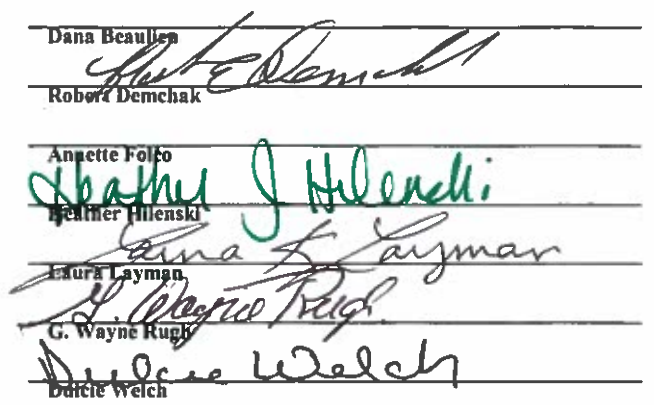 Dana Beaulieu
Robert E Demchak
Robert Demchak
Annette Folco
Heather J Hilenski
Heather Hilenski
Laura K Layman
Laura Layman
G. Wayne Rugh
G. Wayne Rugh
Dulcie Welch
Dulcie Welch